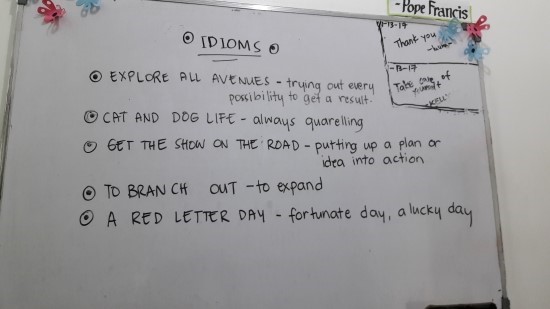 -Pope Francis
1-13-17
Thank you
IDIOMS
EXPLORE ALL AVENUES - trying out every
possibility to get a result.
CAT AND DOG LIFE - always quarelling
GET THE SHOW ON THE ROAD - putting up a plan or
idea into action
TO BRANCH OUT - to expand
A RED LETTER DAY - fortunate day, a lucky day
Take care of
yourself